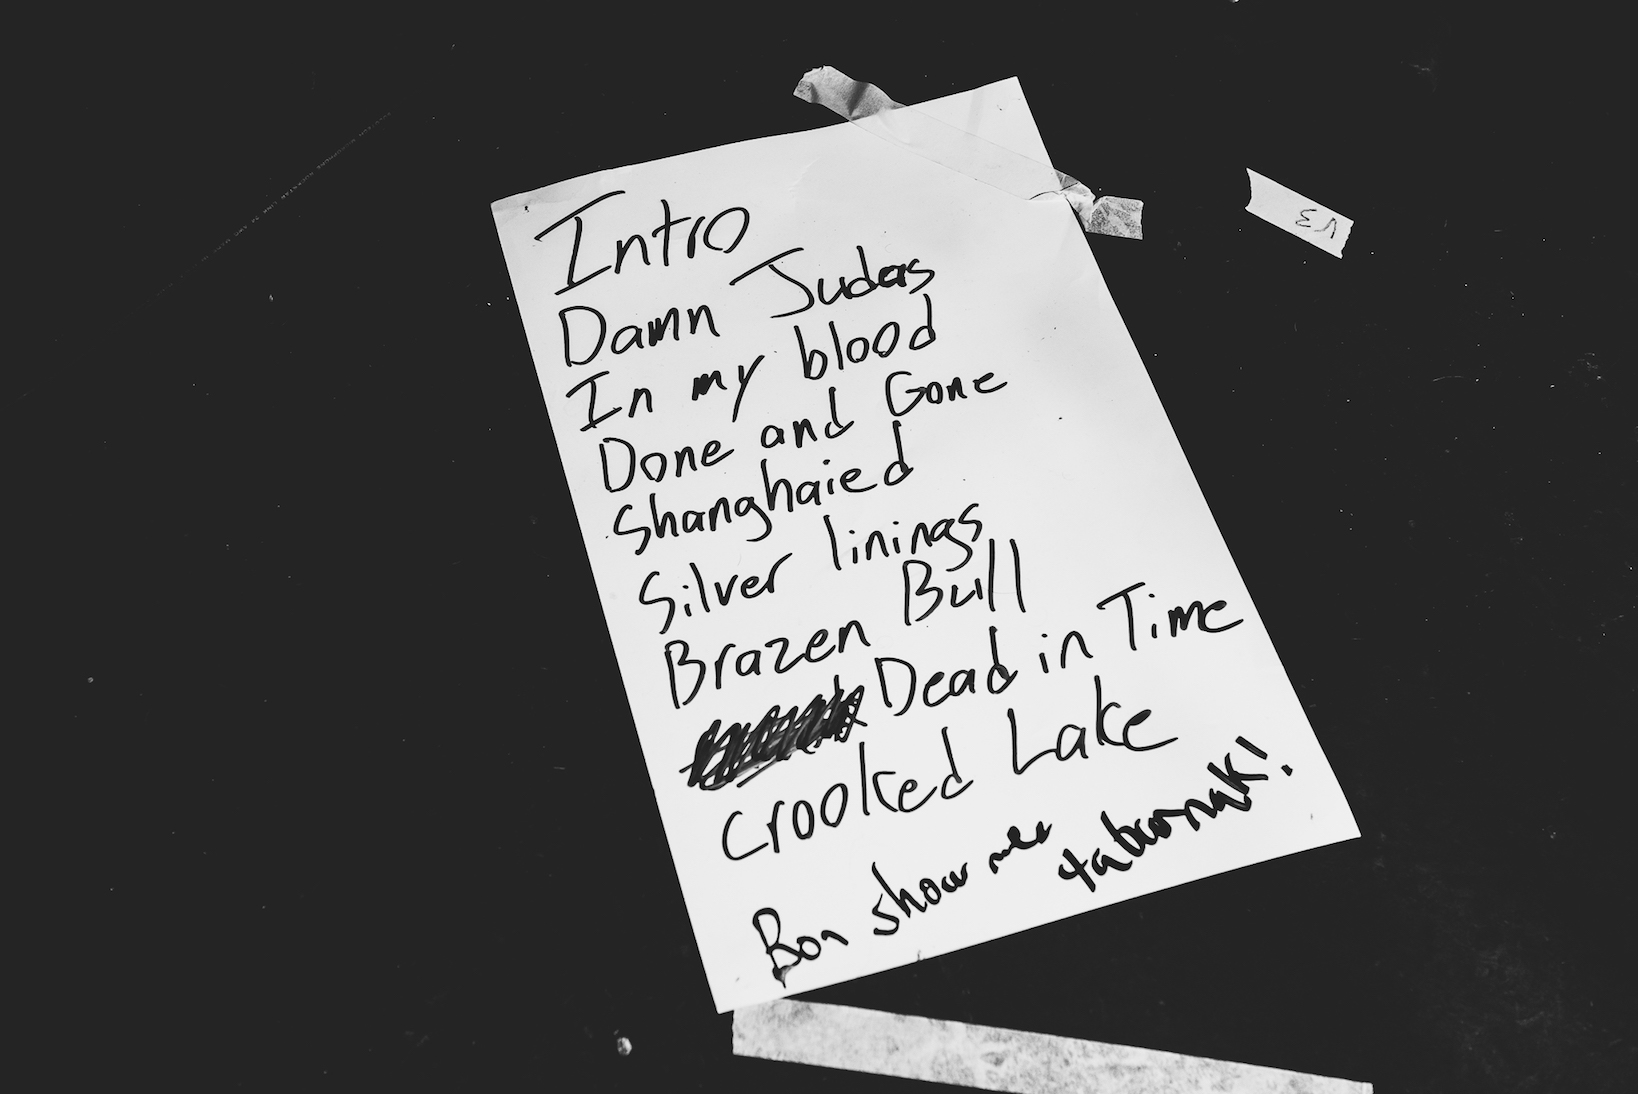 Intro
Damn Judas
In my blood
Done and Gone
Shanghaied
Silver linings
Brazen Bull
Dead in Time
Crooked Lake
Bon show mes tabarnak!
V3